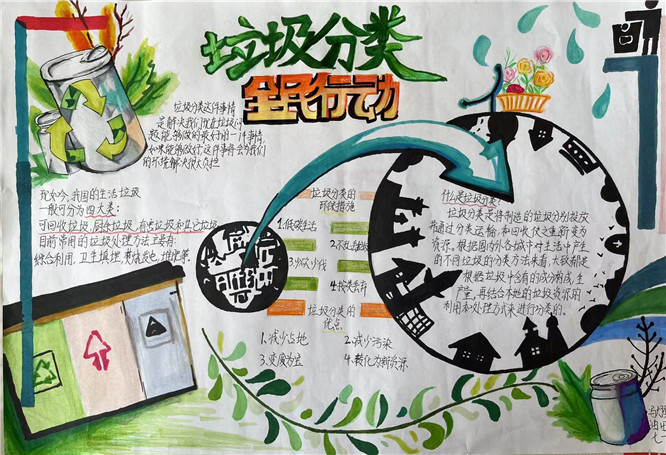 垃圾分类
全民行动
垃圾分类这件事情
是解决我们现在垃圾问
题,能够做的最好的一件事情,
如果能够做好这件事情会为我们
的环境解决很大负担
现如今,我国的生活垃圾
一般可分为四大类:
可回收垃圾,厨余垃圾,有害垃圾和其它垃圾
目前常用的垃圾处理方法主要有:
综合利用,卫生填埋,焚烧发电,堆肥等。
垃圾分类的
环保措施
1.低碳生活
3.少砍少伐
垃圾分类的
优点
1.减少占地
2.减少污染
3.变废为宝
4.转化为新资源
什么是垃圾分类:
垃圾分类是将制造的垃圾分别投放
并通过分类运输和回收使之重新变为
资源。根据国内外各城市对生活中产生
的不同垃圾的分类方法来看,大致都是
根据垃圾中含有的成分构成,生
产量,再结合本地的垃圾资源的
利用和处理方式来进行分类的。